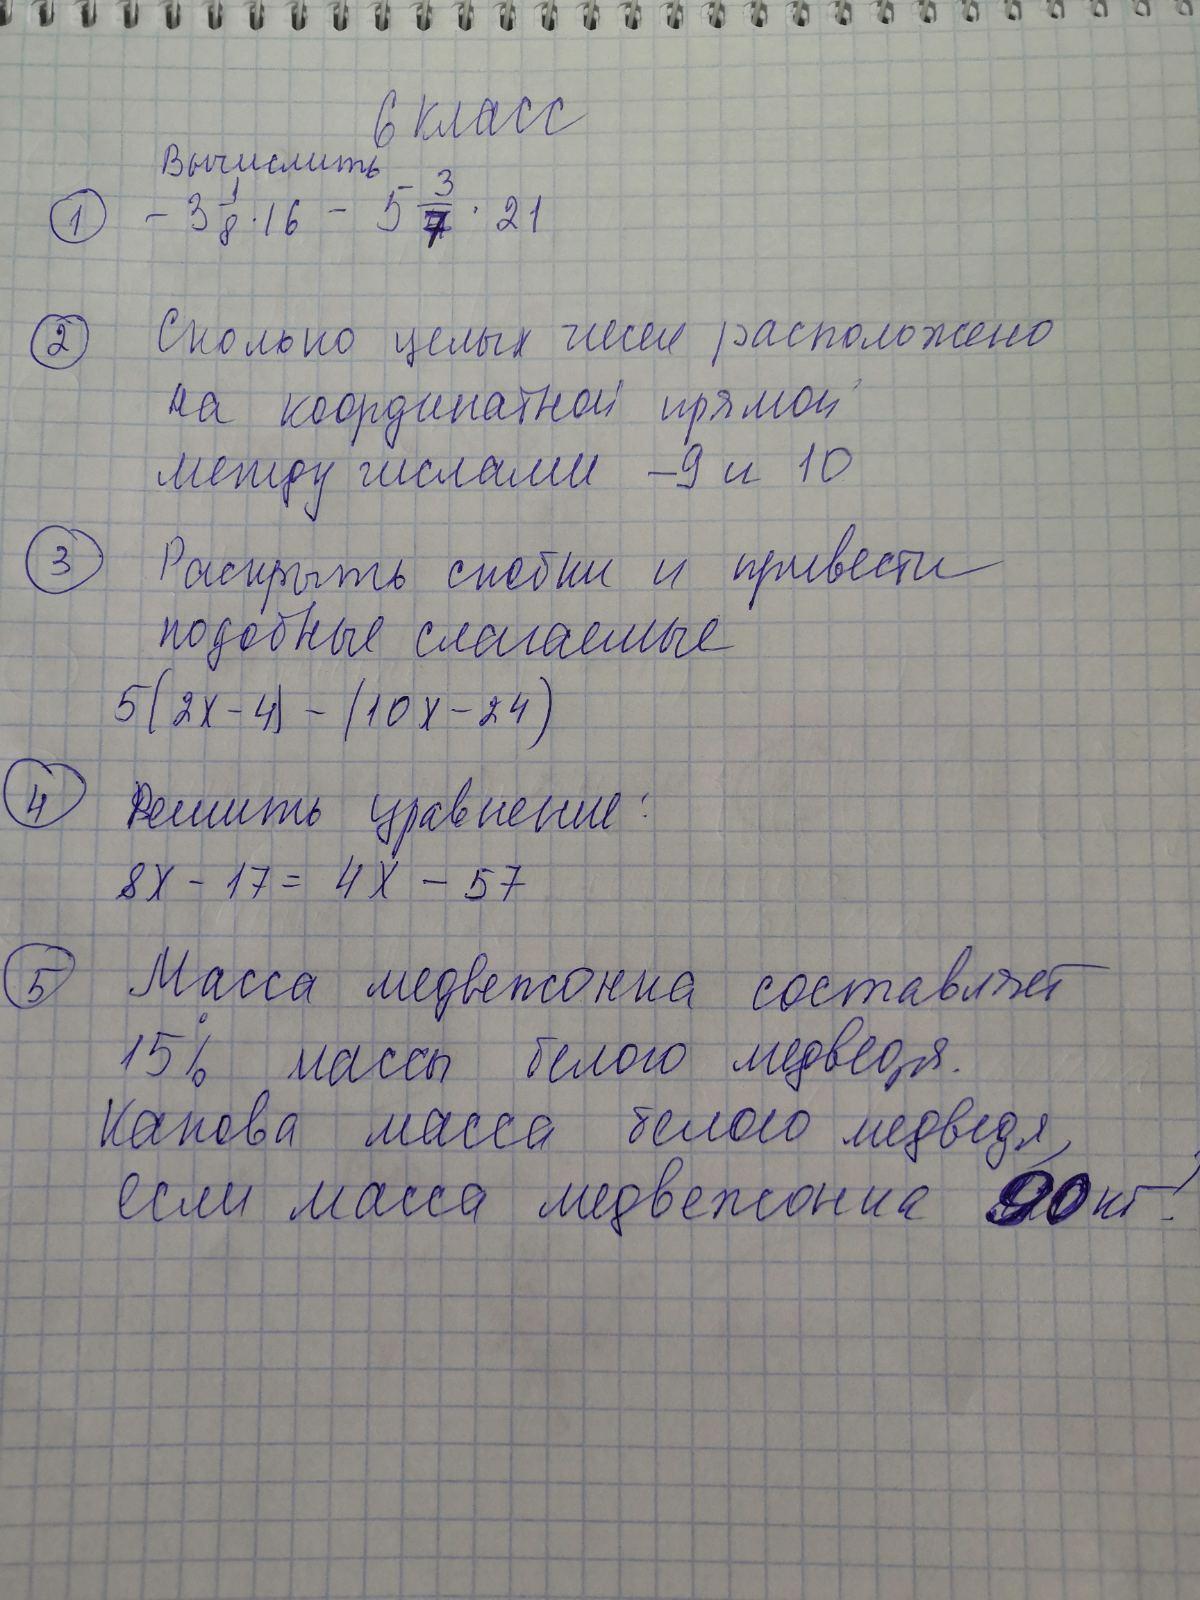 6 класс
Вычислить
① - 3 1/8 · 16 - 5 3/7 · 21
② Сколько целых чисел расположено
на координатной прямой
между числами -9 и 10
③ Раскрыть скобки и привести
подобные слагаемые
5(2x-4) - (10x-24)
④ Решить уравнение:
8x - 17 = 4x - 57
⑤ Масса медвежонка составляет
15% массы белого медведя.
Какова масса белого медведя,
если масса медвежонка 90 кг?